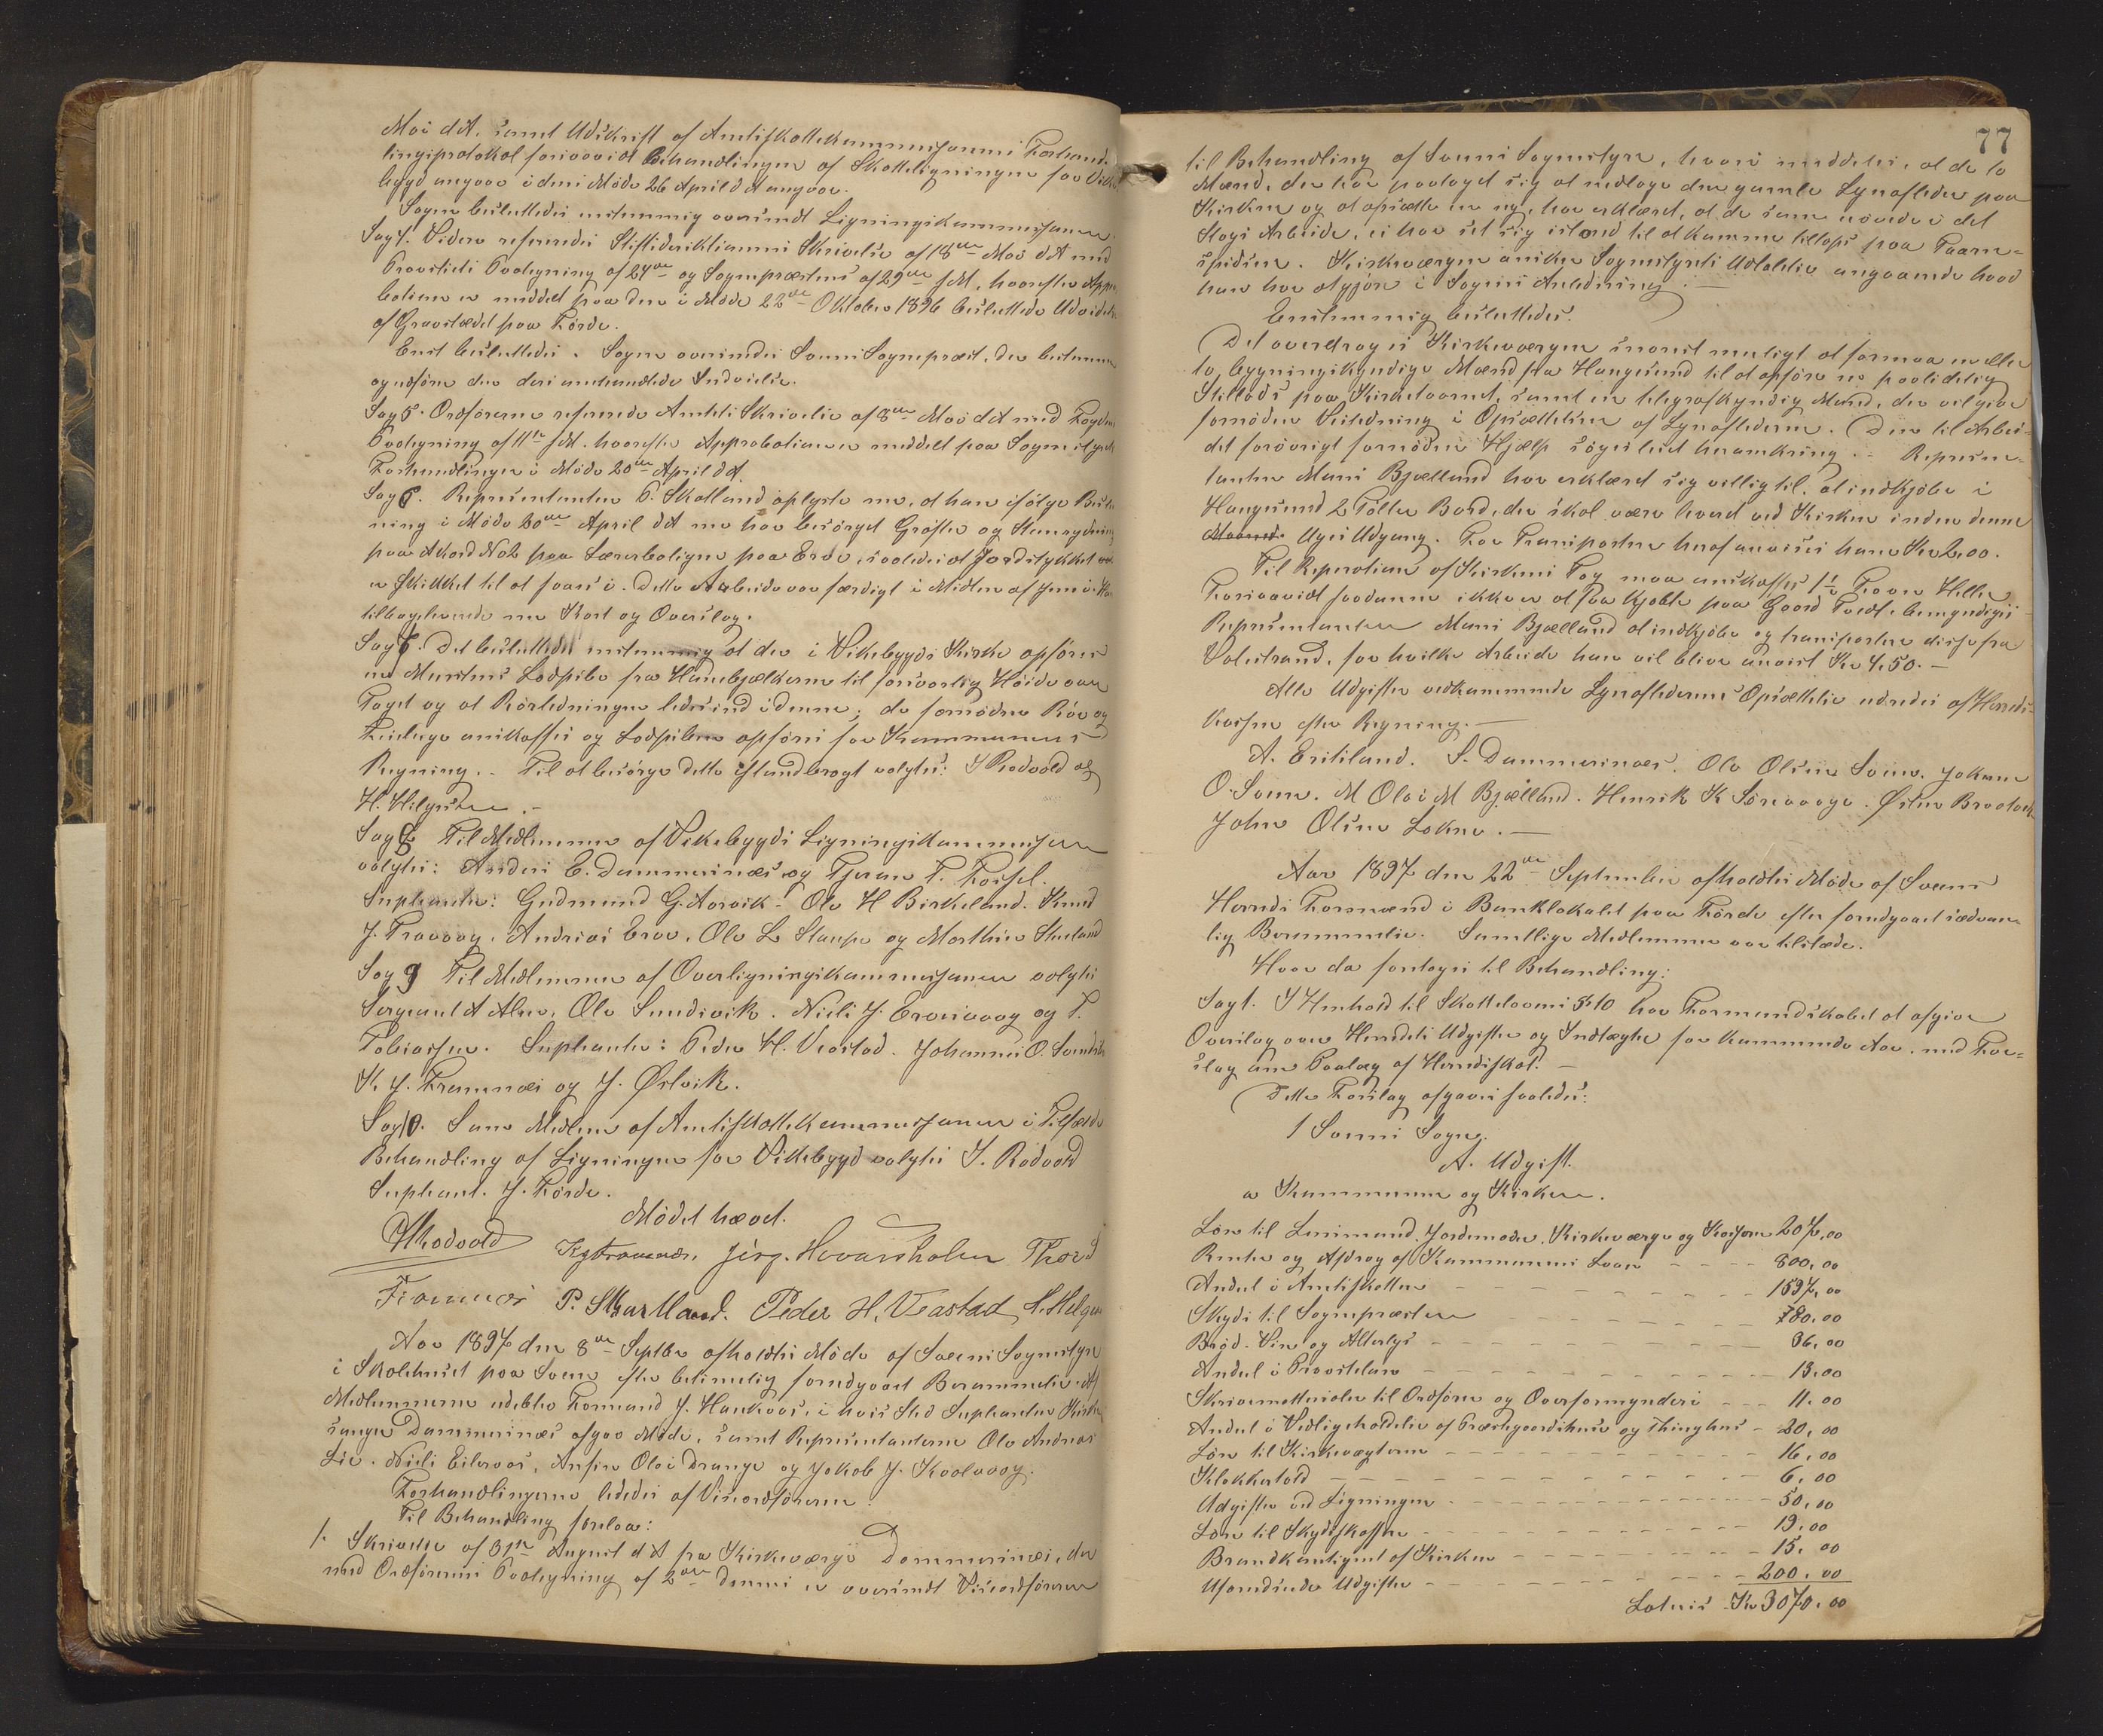 Mai d.A. samt Udskrift af Amtsskattekommissionens Forhand-
lingsprotokol forsaavidt Behandlingen af Skatteligningen for Vikebygd angaar i dens Møde 26 April d.A. angaar.
Sagen besluttedes enstemmig oversendt Ligningskommissionen.
Sag 4. Videre refereredes Stiftsdirektionens Skrivelse af 18de Mai d.A. med
Provstiets Paategning af 24de og Sognepræstens af 29de s.M., hvorefter Appro-
bation er meddelt paa den i Møde 22de Oktober 1896 besluttede Udvidelse
af Gravstedet paa Førde.
Enst. besluttedes. Sagen oversendes Sveens Sognepræst, der bestemmer
og udfører den deri omhandlede Indvielse.
Sag 5. Ordføreren refererede Amtets Skrivelse af 8de Mai d.A. med Fogdens
Paategning af 11te s.M. hvorefter Approbationen er meddelt paa Sognestyrets
Forhandlinger i Møde 20de April d.A.
Sag 6. Repræsentanten P. Skatland oplyste nu, at han ifølge Beslut-
ning i Møde 20de April d.A. nu har besørget Grøfter og Stenrydning
paa Akord No 2 paa Lærerboligen paa Erve, saaledes at Jordstykket nu
er skikket til at saaes i. Dette Arbeide var færdigt i Midten af Juni.
tilbageleverede nu Kart og Overslag.
Sag 7. Det besluttedes enstemmig at der i Vikebygds Kirke opføres
en Murstens Lodpibe fra Hanebjælkerne til forsvarlig Høide over
Taget og at Rørledningen ledes ind i denne; de fornødne Rør og
Teilstene anskaffes og Lodpiben opføres for Kommunens
Regning. - Til at besørge dette istandbragt valgtes: I Rødvold og
H. Helgesen. -
Sag 8. Til Medlemmer af Vikebygds Ligningskommission
valgtes: Anders E. Dommersnæs og Tjeran T. Fosfel.
Suplanter: Gudmund G. Aarvik. Ole H Birkeland. Knud
J. Framvog. Andreas Erve. Ole L Staupe og Mathias Skeeland
Sag 9 Til Medlemmer af Overligningskommissionen valgtes
Sergeant A Alne. Ole Sundsvik. Niels J. Erveivaag og T.
Tobiassen. Suplanter: Peder H. Veastad. Johannes O. Sundsvik
K. J. Framnæs og J. Ørlvik.
Sag 10. Som Medlem af Amtsskattekommissionen i Tilfælde
Behandling af Ligningen for Vikebygd valgtes I. Rødvold
Suplant. J. Førde.
Mødet hævet.
IRødvold K J Framnæs. Jørg. Hovarsholm Thord
Framnæs P. Skartland. Peder H. Veastad H. Helgesen
Aar 1897 den 8de Septbr afholdtes Møde af Sveens Sognestyre
i Skolehuset paa Sveen efter betimelig foregaaet Berammelse. Af
Medlemmerne udeblev Formand J. Haukaas, i hvis Sted Suplanten Kirke-
sanger Dommersnæs afgav Møde, samt Repræsentanterne Ole Andreas
Lie. Niels Eilevaas, Ansien Olai Drange og Jakob J. Kvalvaag.
Forhandlingerne lededes af Viseordføreren.
Til Behandling forelaa:
1. Skrivelse af 31te August d.A. fra Kirkeværge Dommersnæs, der
med Ordførerens Paategning af 2den dennes er oversendt Viseordføreren
77
til Behandling af Sveens Sognestyre, hvori meddeles, at de to
Mænd, der har paataget sig at nedtage den gamle Lynafleder paa
Kirken og at opsætte en ny, har erklæret, at de som uøvede i det
Slags Arbeide, ei har set sig istand til at komme tiltops paa Taarn-
spidsen. Kirkeværgen ønsker Sognestyrets Udtalelse angaaende hvad
han har at gjøre i Sagens Anledning. -
Enstemmig besluttedes:
Det overdrages Kirkeværgen snarest muligt at formaa en eller
to, bygningskyndige Mænd fra Haugesund til at opføre en paalidelig
Stillads paa Kirketaarnet, samt en telegrafkyndig Mand, der vil give
fornøden Veiledning i Opsættelsen af Lynaflederen. Den til Arbei-
det forøvrigt fornøden Hjælp søges leiet heromkring. - Repræsen-
tanten Mons Bjælland har erklæret sig villig til, at indkjøbe i
Haugesund 2 Tolter Bord, der skal være leveret ved Kirken inden denne
Maaned. Uges Udgang. For Transporten heraf anvises ham Kr 2.00.
Til Reparation af Kirkens Tag maa anskaffes 1½ Favn Heller
Forsaavidt saadanne ikke er at faa kjøbt paa Gaard Tveit bemyndiges
Repræsentanten Mons Bjælland at indkjøbe og transportere disse fra
Valestrand, for hvilke Arbeide han vil blive anvist Kr 4.50. -
Alle Udgifter vedkommende Lynaflederens Opsættelse udredes af Herreds-
kassen efter Regning. -
A. Eritsland. S. Dommersnæs. Ole Olsen Sveen. Johan
O. Sveen. M Olai M Bjælland. Henrik K Sørvaage. Østen Braatvedt
John Olsen Lokne. -
Aar 1897 den 22de September afholdtes Møde af Sveens
Herreds Formænd i Banklokalet paa Førde efter foregaaet sædvan-
lig Berammelse. Samtlige Medlemmer var tilstede.
Hvor da foretages til Behandling:
Sag 1. I Henhold til Skattelovens § 10 har Formandskabet at afgive
Overslag over Herredets Udgifter og Indtægter for kommende Aar, med For-
slag om Paalæg af Herredsskat. -
Dette Forslag afgaves saaledes:
1 Sveens Sogn.
A. Udgift.
a Kommunen og Kirken.
Løn til Lensmand, Jordemoder, Kirkeværge og Kasserer 207,00
Renter og Afdrag af Kommunens Laan - - - - 800,00
Andel i Amtsskatten - - - - 1597,00
Skyds til Sognepræsten - - - - 780,00
Brød. Vin og Alterlys - - - - 36,00
Andel i Provstelaw - - - - 13,00
Skrivematerialer til Ordfører og Overformynderi - - - 11,00
Andel i Vedligeholdelse af Præstegaardshuse og Thinghus - 20,00
Løn til Kirkevægteren - - - - 16,00
Klokkertold - - - - 6,00
Udgifter ved Ligningen - - - - 50,00
Løn til Skydsskaffer - - - - 19,00
Brandkontingent af Kirken - - - - 15,00
Uforudseede Udgifter - - - - 200,00
Lateris Kr 3070,00